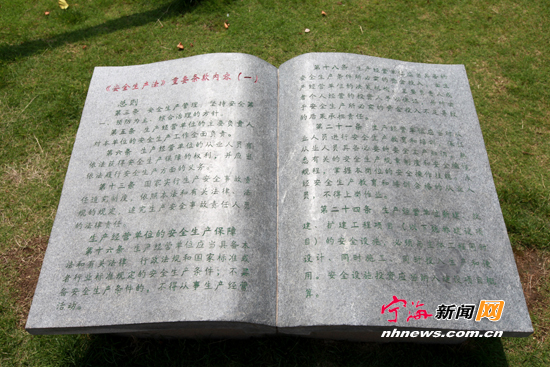 《安全生产法》重要条款内容（一）
总则
第三条 安全生产管理，坚持安全第
一、预防为主、综合治理的方针。
第五条 生产经营单位的主要负责人
对本单位的安全生产工作全面负责。
第六条 生产经营单位的从业人员有
依法获得安全生产保障的权利，并应当
依法履行安全生产方面的义务。
第十三条 国家实行生产安全事故责
任追究制度，依照本法和有关法律、法
规的规定，追究生产安全事故责任人员
的法律责任。
生产经营单位的安全生产保障
第十六条 生产经营单位应当具备本
法和有关法律、行政法规和国家标准或
者行业标准规定的安全生产条件；不具
备安全生产条件的，不得从事生产经营
活动。
第十八条 生产经营单位应当具备的
安全生产条件所必需的资金投入，由生
产经营单位的决策机构、
者个人经营的投资人予以保证，并对由
于安全生产所必需的资金投入不足导致
的后果承担责任。
第二十一条 生产经营单位应当对
业人员进行安全生产教育和培训，保证
从业人员具备必要的安全生产知识，熟
悉有关的安全生产规章制度和安全操作
规程，掌握本岗位的安全操作技能。未
经安全生产教育和培训合格的从业人
员，不得上岗作业。
第二十四条 生产经营单位新建、改
建、扩建工程项目（以下统称建设项
目）的安全设施，必须与主体工程同时
设计、同时施工、同时投入生产和使
用。安全设施投资应当纳入建设项目概
算。
宁海新闻网
nhnews.com.cn